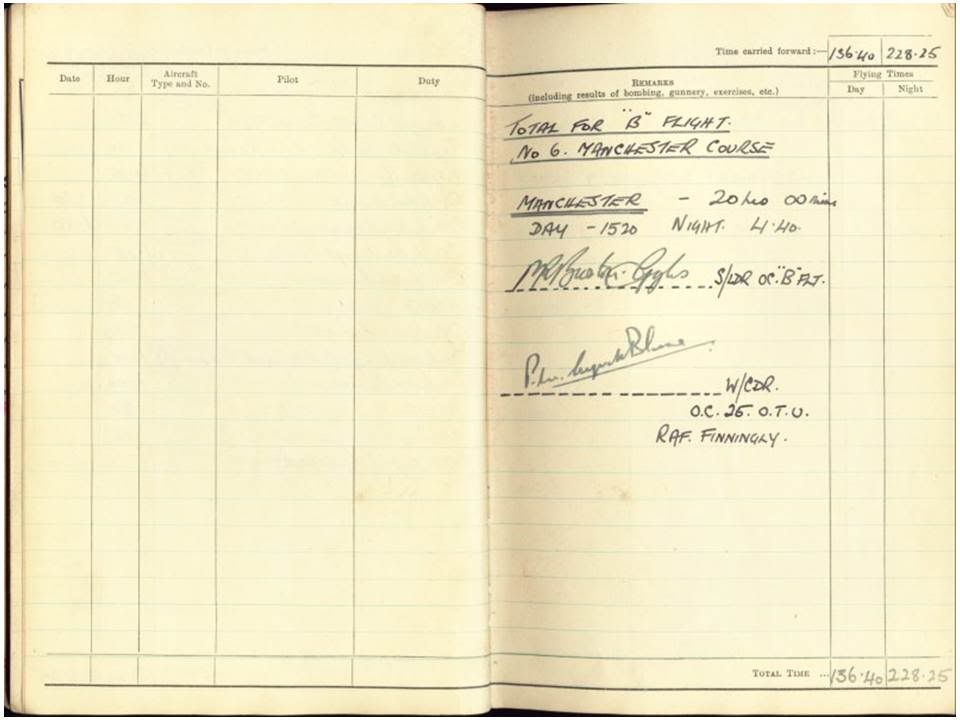 Time carried forward :— 136·40 228·25
Date Hour Aircraft Type and No. Pilot Duty
REMARKS
(including results of bombing, gunnery, exercises, etc.)
Flying Times
Day Night
TOTAL FOR "B" FLIGHT.
No 6. MANCHESTER COURSE
MANCHESTER – 20 hrs 00 mins
DAY – 1520 NIGHT. 4·40.
S/LDR OC. "B" FLT.
W/CDR.
O.C. 25. O.T.U.
RAF. FINNINGLY.
TOTAL TIME ... 136·40 228·25